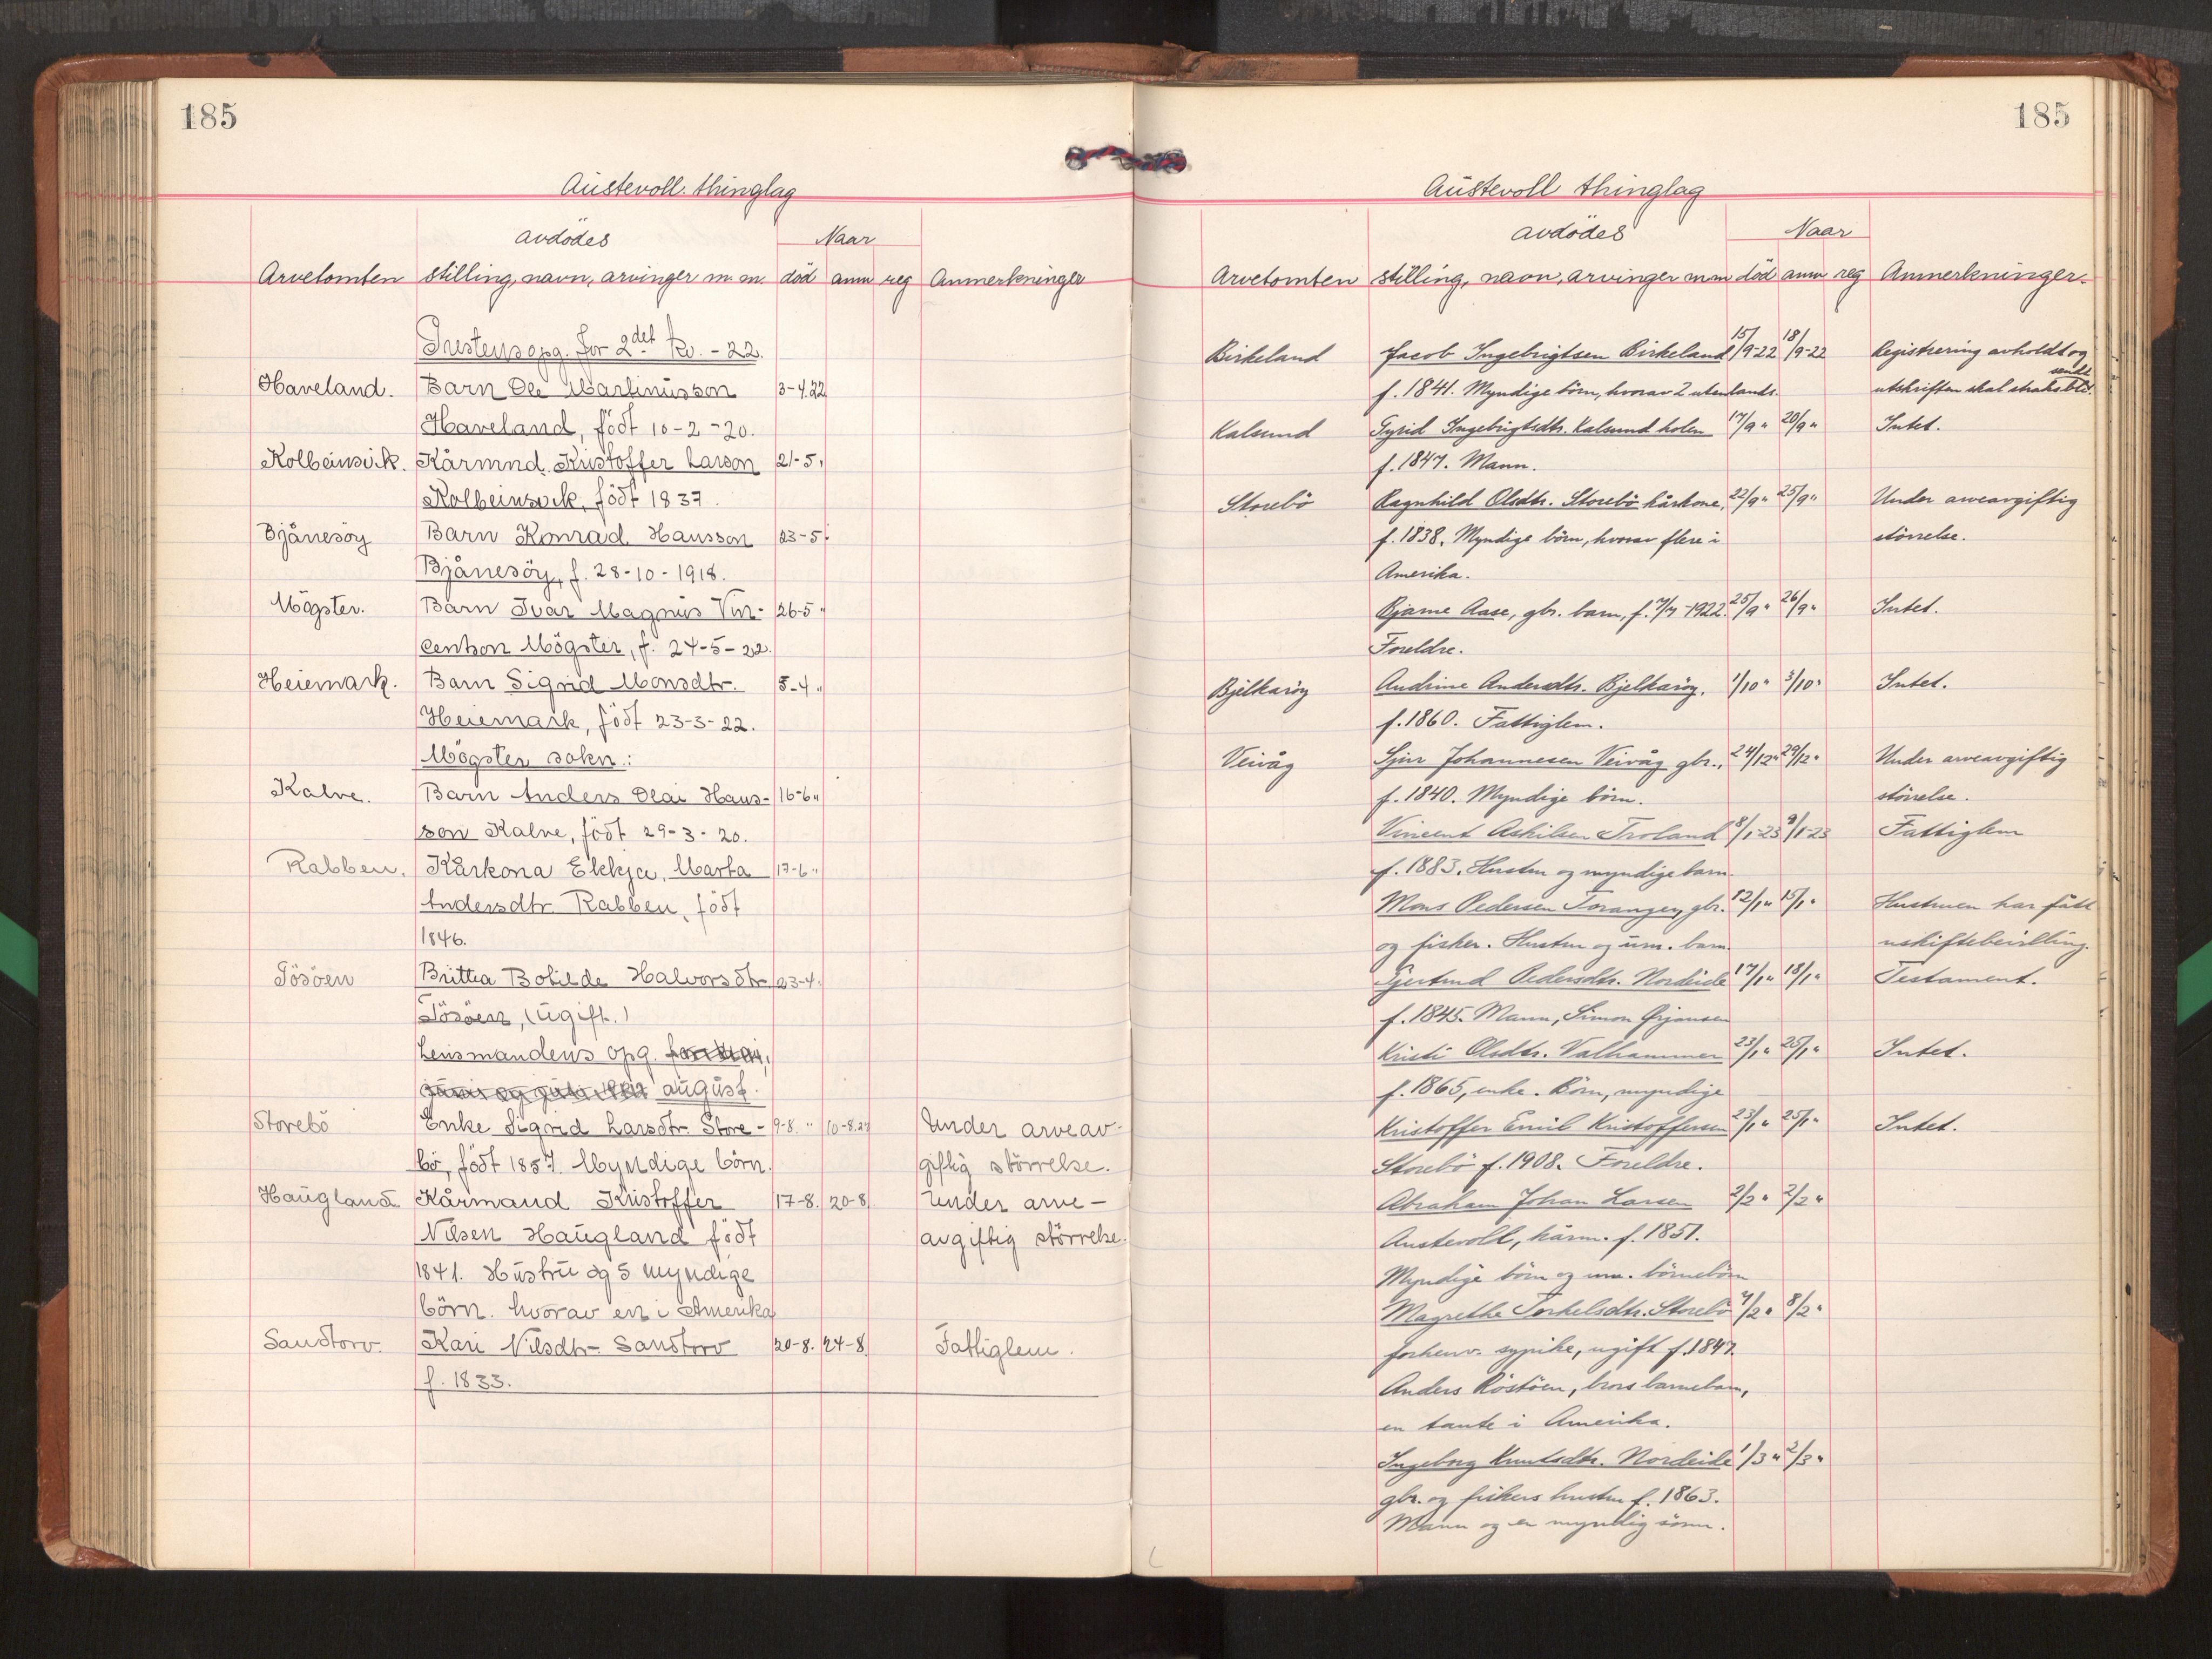 185
Austevoll thinglag
avdödes
Naar
Arvetomten stilling, navn, arvinger m. m. död anm reg Anmerkninger
Prestens opg. for 2det kv. - 22.
Haveland. Barn Ole Martinusson 3-4.22
Haveland, födt 10-2-20.
Kolbeinsvik. Kårmnd. Kristoffer Larson 21-5 "
Kolbeinsvik, födt 1837.
Bjånesöy Barn Konrad Hansson 23-5 "
Bjånesöy, f. 28-10-1918.
Mögster. Barn Ivar Magnus Vin- 26-5 "
centson Mögster, f. 24-5-22.
Heiemark. Barn Sigrid Monsdtr. 5-4 "
Heiemark, födt 23-3-22.
Mögster sokn:
Kalve. Barn Anders Olai Hans- 16-6 "
son Kalve, födt 29-3-20.
Rabben. Kårkona Ekkja, Marta 17-6 "
Andersdtr. Rabben, födt
1846.
Tösöen Brittea Botilde Halvorsdtr 23-4 "
Tösöen, (ugift.)
Lensmandens opg. for mai,
juni og juli 1922 august.
Storebö Enke Sigrid Larsdtr. Store- 9-8. " 10-8.22 Under arveav-
bö, födt 1857. Myndige börn. giftig störrelse.
Haugland Kårmand Kristoffer 17-8. 20-8 Under arve-
Nilsen Haugland födt avgiftig störrelse.
1841. Hustru og 5 myndige
börn. hvorav en i Amerika
Sandtorv. Kari Nilsdtr. Sandtorv 20-8. 24-8 Fattiglem.
f. 1833.
185
Austevoll thinglag
avdödes
Naar
Arvetomten stilling, navn, arvinger m m död anm reg Anmerkninger.
Birkeland Jacob Ingebrigtsen Birkeland 15/9-22 18/9-22 Registrering avholdt og
f. 1841. Myndige börn, hvorav 2 utenlands. utskriften skal straks bli sendt.
Kalsund Gyrid Ingebrigtsdtr. Kalsund holen 17/9 " 20/9 " Intet.
f. 1847. Mann.
Storebö Ragnhild Olsdtr. Storebö kårkone, 22/9 " 25/9 " Under arveavgiftig
f. 1838. Myndige börn, hvorav flere i störrelse.
Amerika.
Bjarne Aase, gbr. barn, f. 7/7-1922. 25/9 " 26/9 " Intet.
Foreldre.
Bjelkaröy Andrine Andersdtr. Bjelkaröy. 1/10 " 3/10 " Intet.
f. 1860. Fattiglem.
Veivåg Sjur Johannesen Veivåg gbr., 24/12 " 29/12 " Under arveavgiftig
f. 1840. Myndige börn. störrelse.
Vincent Askilsen Troland 8/1-23 9/1-23 Fattiglem
f. 1883. Hustru og myndige barn.
Mons Pedersen Torangen, gbr. 12/1 " 15/1 " Hustruen har fått
og fisker. Hustru og um. barn. uskiftebevilling.
Gjertrud Pedersdtr. Nordeide 17/1 " 18/1 " Testament.
f. 1845. Mann, Simon Ørjansen
Kristi Olsdtr. Valhammer 23/1 " 25/1 " Intet.
f. 1865, enke. Börn, myndige
Kristoffer Emil Kristoffersen 23/1 " 25/1 " Intet.
Storebö f. 1908. Foreldre.
Abraham Johan Larsen 2/2 " 2/2 "
Austevoll, kårm. f. 1851.
Myndige börn og um. börnebörn
Magrethe Torkelsdtr. Storebö 7/2 " 8/2 "
forhenv. sypike, ugift f. 1847.
Anders Röstöen, brors barnebarn,
en tante i Amerika.
Ingeborg Knutsdtr. Nordeide 1/3 " 2/3 "
gbr. og fiskers hustru f. 1863.
Mann og en myndig sönn.